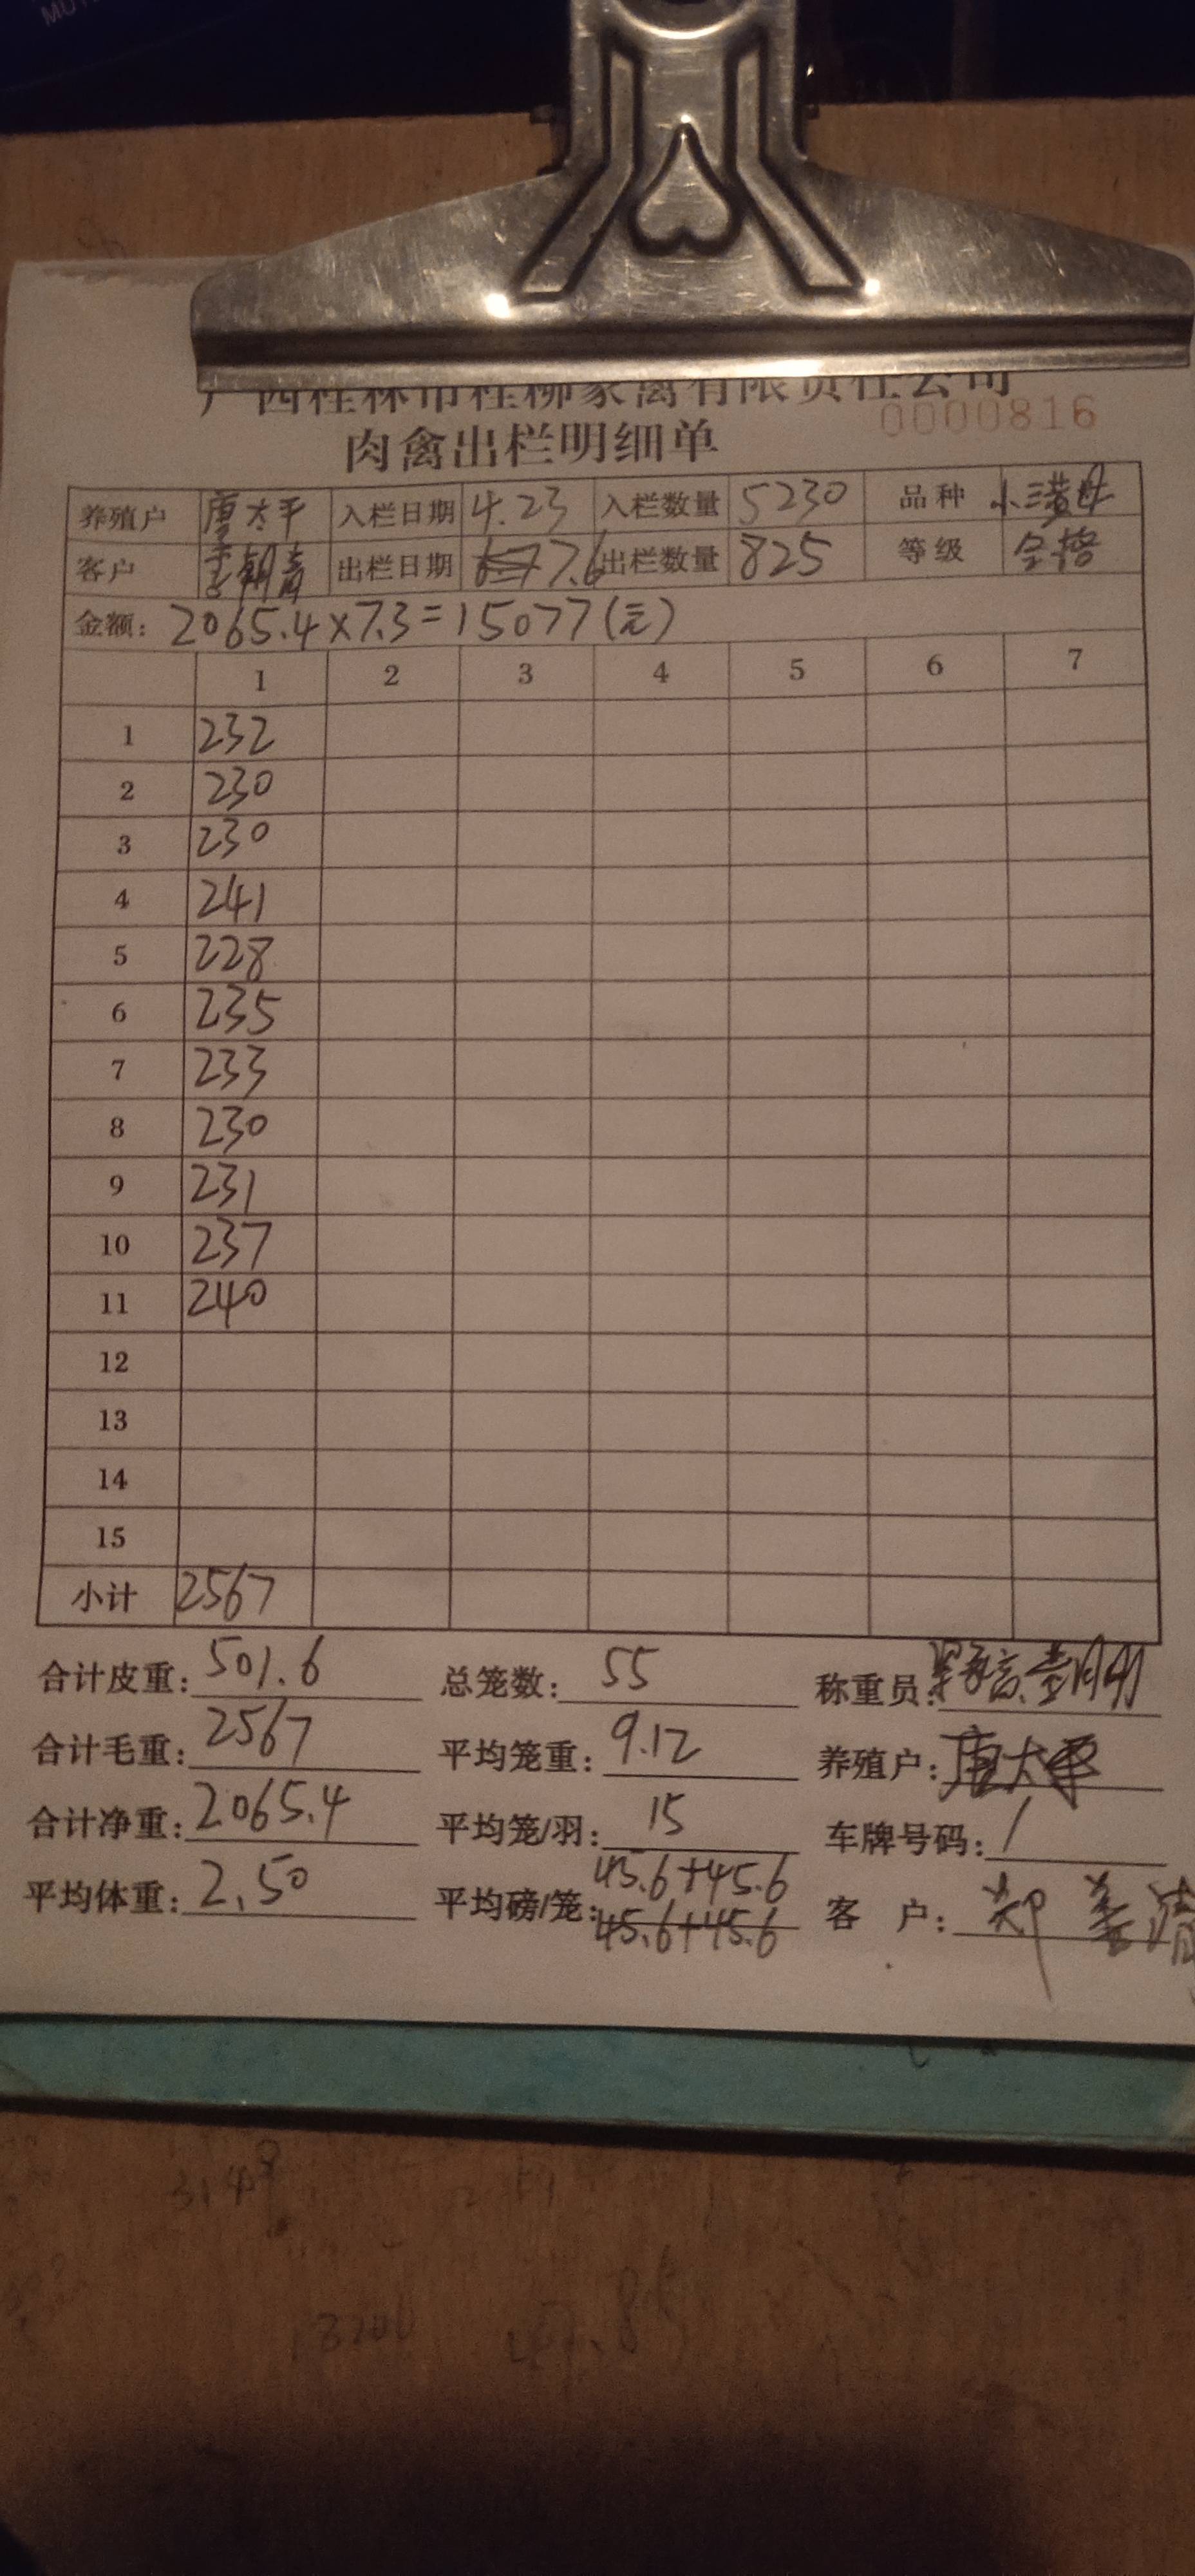 广西桂林市桂柳家禽有限责任公司
0000816
肉禽出栏明细单
养殖户 唐太平 入栏日期 4.23 入栏数量 5230 品种 小三黄母
客户 李朝青 出栏日期 7.6 出栏数量 825 等级 合格
金额: 2065.4×7.3=15077(元)
1 2 3 4 5 6 7
1 232
2 230
3 230
4 241
5 228
6 235
7 233
8 230
9 231
10 237
11 240
12
13
14
15
小计 2567
合计皮重: 501.6 总笼数: 55 称重员:
合计毛重: 2567 平均笼重: 9.12 养殖户: 唐太平
合计净重: 2065.4 平均笼/羽: 15 车牌号码: /
平均体重: 2.50 平均磅/笼: 45.6+45.6 客 户:
45.6+45.6